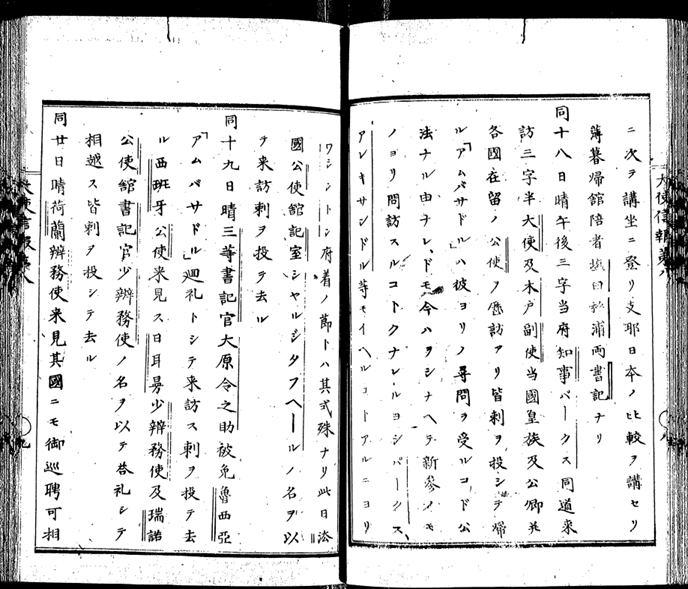 大使信報
ニ次ヲ講坐ニ登リ支耶日本ノ比較ヲ講セリ
薄暮帰館陪者 両書記ナリ
同十八日晴午後三字当府知事パークス同道来
訪三字半大使及木戸副使当国皇族及公卿并
各國在留ノ公使ノ歴訪アリ皆刺ヲ投シテ帰
ル「アムバサドル」ハ彼ヨリノ尋問ヲ受ルコト公
法ナル由ナレドモ今ハヲシナヘテ新参ノモ
ノヨリ問訪スルコトクナレルヨシパークス
アレキサンドル等モイヘルコトアルニヨリ
ワシントン府着ノ節トハ其式殊ナリ此日
國公使館記室シャルジタフヘールノ名ヲ以
テ来訪刺ヲ投テ去ル
同十九日晴三等書記官大原令之助被免魯西亞
「アムバサドル」廻礼トシテ来訪ス刺ヲ投テ去
ル西班牙公使来見ス日耳曼少辨務使及瑞諾
公使舘書記官少辨務使ノ名ヲ以テ答礼シテ
相越ス皆刺ヲ投シテ去ル
同廿日晴荷蘭辨務使来見其國ニモ御巡聘可相